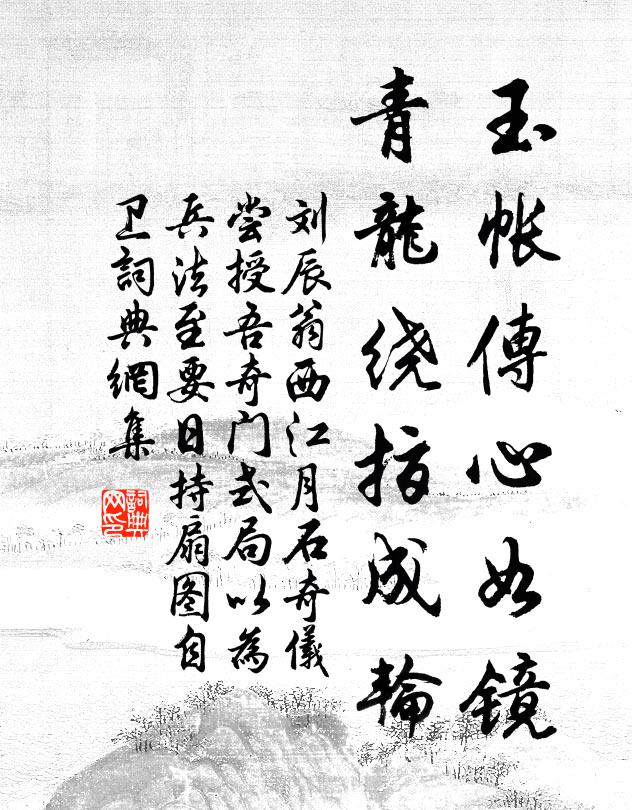 玉帐傳心如镜
青龍绕指成輪
刘辰翁西江月石奇儀
尝授吾奇门式局以為
兵法至要日持扇图自
卫詞典網集
詞典网印